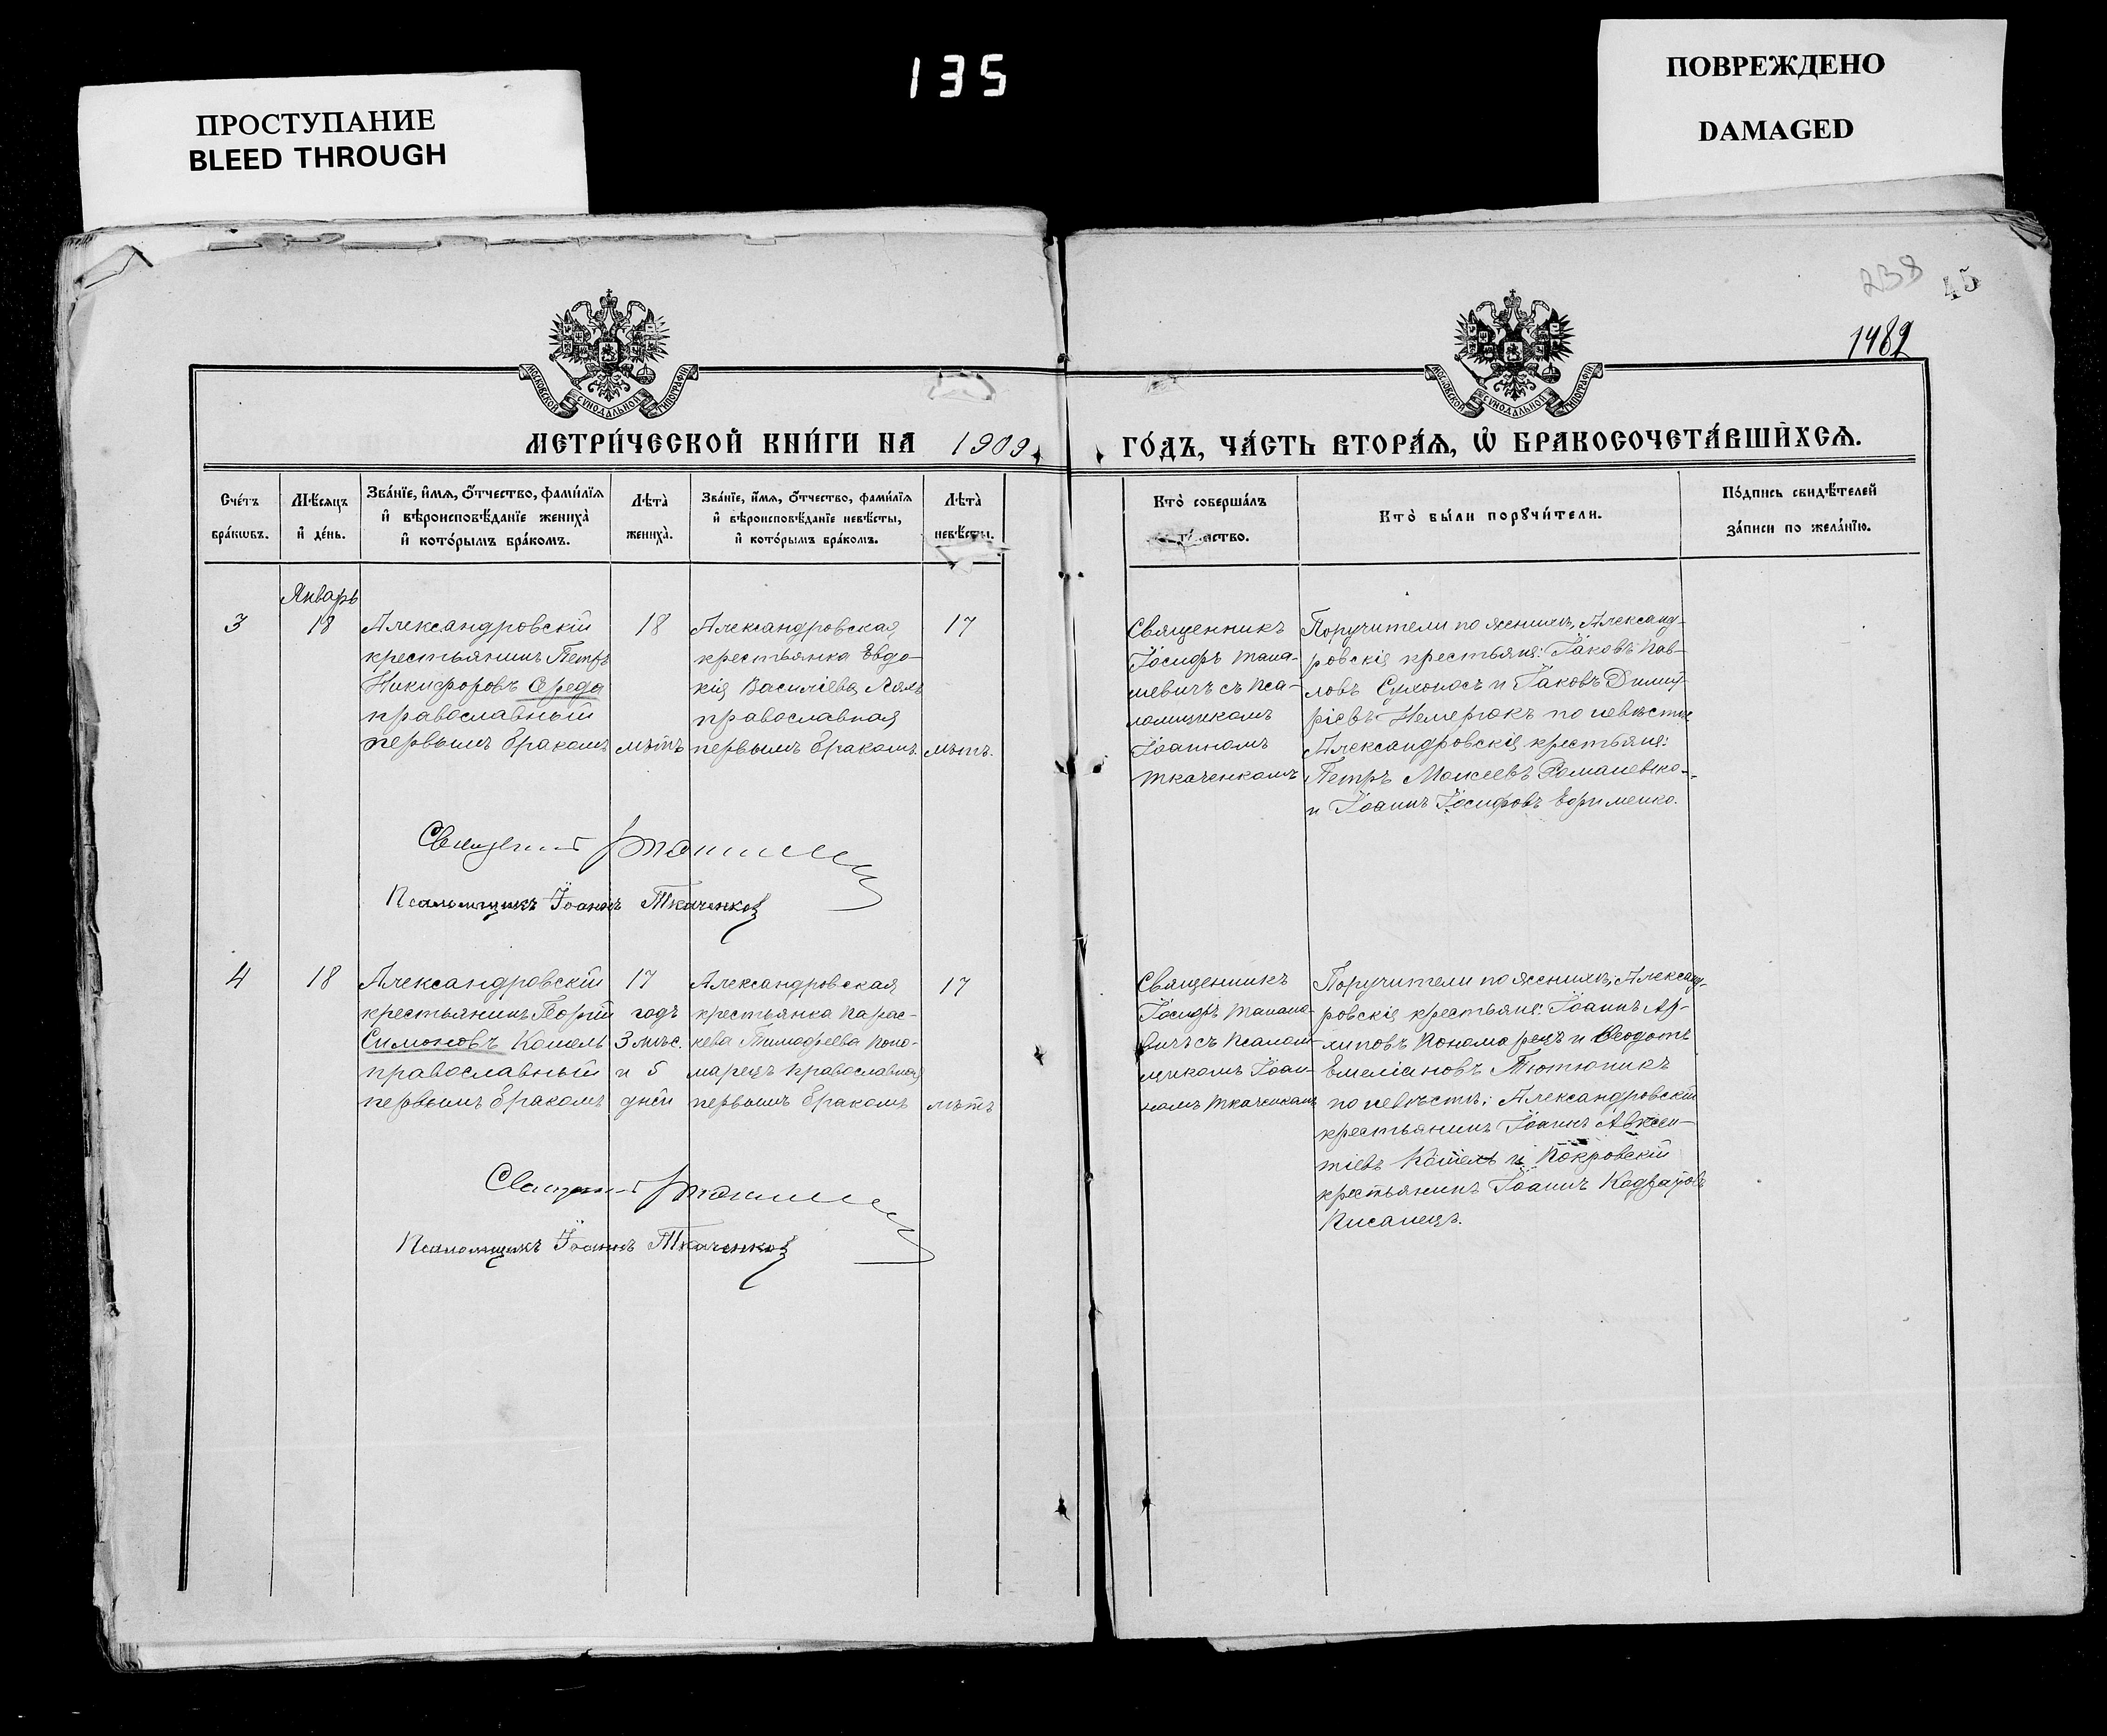 135
ПРОСТУПАНИЕ
BLEED THROUGH
ПОВРЕЖДЕНО
DAMAGED
238 45
1482
МОСКОВСКОЙ СѴНОДАЛЬНОЙ ТИПОГРАФІИ
МОСКОВСКОЙ СѴНОДАЛЬНОЙ ТИПОГРАФІИ
МЕТРИ́ЧЕСКОЙ КНИ́ГИ НА 1909
ГО́ДЪ, ЧА́СТЬ ВТОРА́Я, Ѡ БРАКОСОЧЕТА́ВШИХСЯ.
Сче́тъ
бра́кѡвъ.
Мѣ́сяцъ
и҆ де́нь.
Зва́нїе, и҆́мя, ѻ҆́тчество, фами́лїя
и҆ вѣроисповѣ́данїе жениха̀
и҆ кото́рымъ бра́комъ.
Лѣта̀
жениха̀.
Зва́нїе, и҆́мя, ѻ҆́тчество, фами́лїя
и҆ вѣроисповѣ́данїе невѣ́сты,
и҆ кото́рымъ бра́комъ.
Лѣта̀
невѣ́сты.
Кто̀ соверша́лъ
та́инство.
Кто̀ бы́ли порꙋчи́тели.
По́дпись свидѣ́телей
за́писи по жела́нїю.
Январь
3
18
Александровскій
крестьянинъ Петръ
Никифоровъ Середа
православный
первымъ бракомъ
18
лѣтъ
Александровская
крестьянка Евдо-
кія Василіева
православная
первымъ бракомъ
17
лѣтъ.
Священникъ
Іосифъ Тана-
шевичъ съ пса-
ломщикомъ
Іоанномъ
Ткаченкомъ
Поручители по женихѣ, Александ-
ровскія крестьяне: Іаковъ Пав-
ловъ и Іаковъ Димит-
ріевъ по невѣстѣ
Александровскія крестьяне:
Петръ Моисеевъ
и Іоаннъ Іосифовъ Ефименко.
Священникъ
Псаломщикъ Іоаннъ Ткаченко
4
18
Александровскій
крестьянинъ Георгій
Симоновъ Кошель
православный
первымъ бракомъ
17
годъ
3 мѣс.
и 5
дней
Александровская
крестьянка Парас-
кева Тимофеева Поно-
марецъ православная
первымъ бракомъ
17
лѣтъ
Священникъ
Іосифъ Танаше-
вичъ съ псалом-
щикомъ Іоан-
номъ Ткаченкомъ
Поручители по женихѣ; Александ-
ровскія крестьяне: Іоаннъ Ар-
хиповъ Пономарецъ и Феодотъ
Емеліановъ Тютюникъ
по невѣстѣ; Александровскій
крестьянинъ Іоаннъ Авксен-
тіевъ Кошель и Покровскій
крестьянинъ Іоаннъ Кодратовъ
Писанецъ.
Священникъ
Псаломщикъ Іоаннъ Ткаченко